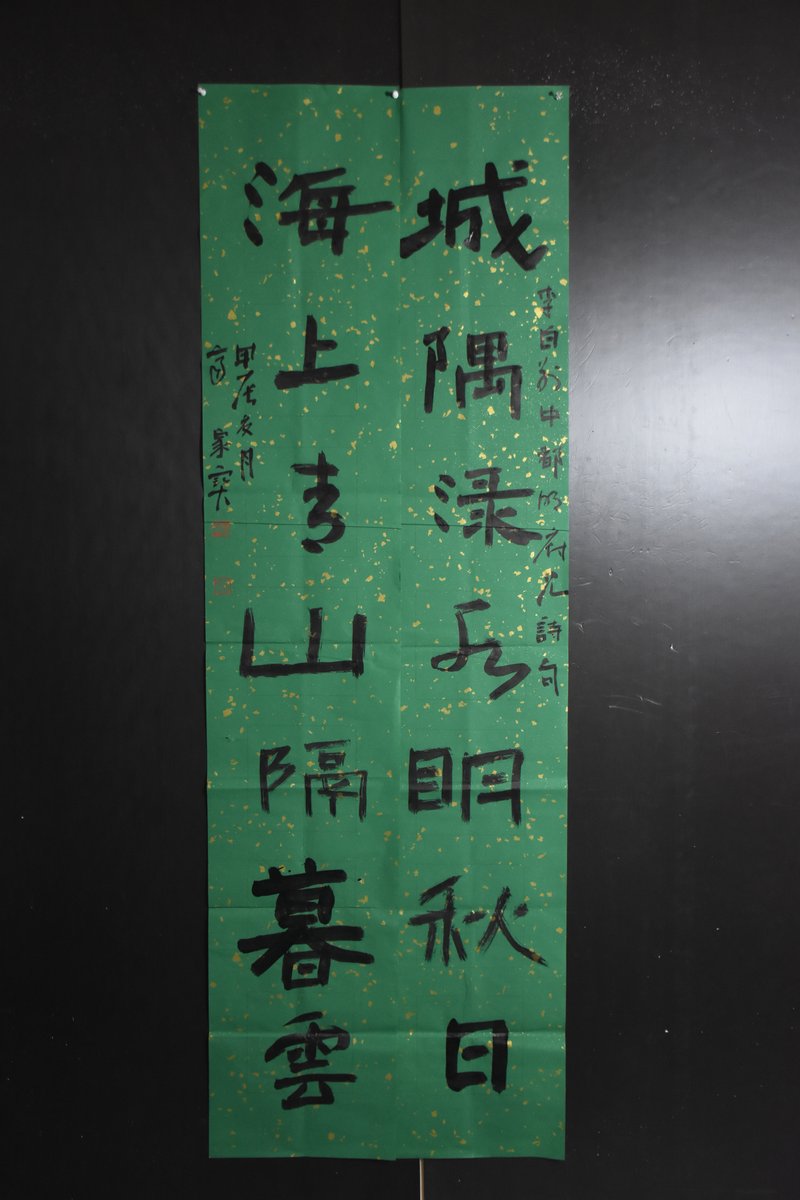 李白别中都明府兄詩句
城隅渌水明秋日
海上青山隔暮雲
甲辰月